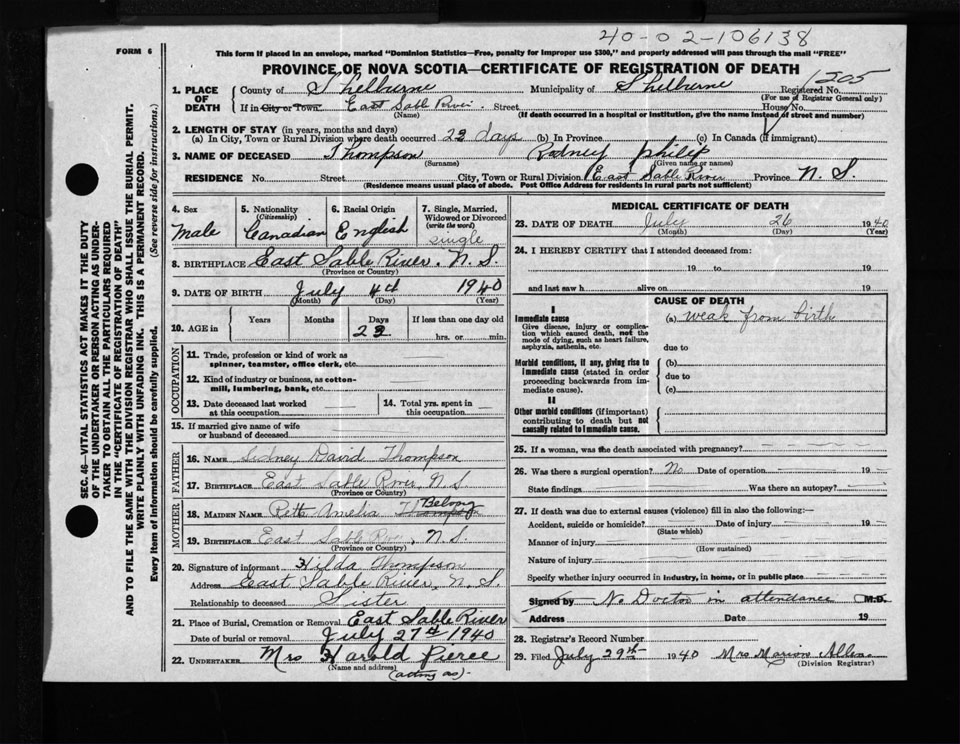 40-02-106138
FORM 6
This form if placed in an envelope, marked "Dominion Statistics—Free, penalty for improper use $300," and properly addressed will pass through the mail "FREE"
PROVINCE OF NOVA SCOTIA—CERTIFICATE OF REGISTRATION OF DEATH
1205
1. PLACE OF DEATH County of Shelburne Municipality of Shelburne Registered No.
(For use of Registrar General only)
If in City or Town East Sable River Street House No.
(Name) (If death occurred in a hospital or institution, give the name instead of street and number)
2. LENGTH OF STAY (in years, months and days)
(a) In City, Town or Rural Division where death occurred 22 days (b) In Province (c) In Canada (if immigrant)
3. NAME OF DECEASED Thompson Rodney Philip
(Surname) (Given name or names)
RESIDENCE No. Street City, Town or Rural Division East Sable River Province N. S.
(Residence means usual place of abode. Post Office Address for residents in rural parts not sufficient)
4. Sex Male
5. Nationality (Citizenship) Canadian
6. Racial Origin English
7. Single, Married, Widowed or Divorced (write the word) single
8. BIRTHPLACE East Sable River, N. S.
(Province or Country)
9. DATE OF BIRTH July 4th 1940
(Month) (Day) (Year)
10. AGE in Years Months Days 22 If less than one day old
hrs. or min.
OCCUPATION
11. Trade, profession or kind of work as spinner, teamster, office clerk, etc.
12. Kind of industry or business, as cotton-mill, lumbering, bank, etc.
13. Date deceased last worked at this occupation
14. Total yrs. spent in this occupation
15. If married give name of wife or husband of deceased
FATHER
16. NAME Sidney David Thompson
17. BIRTHPLACE East Sable River, N. S.
(Province or Country)
MOTHER
18. MAIDEN NAME Retta Amelia Thompson Belong
19. BIRTHPLACE East Sable River, N. S.
(Province or Country)
20. Signature of informant Hilda Thompson
Address East Sable River, N. S.
Relationship to deceased Sister
21. Place of Burial, Cremation or Removal East Sable River
Date of burial or removal July 27th 1940
22. UNDERTAKER Mrs Harold Pierce
(Name and address)
(acting as)
MEDICAL CERTIFICATE OF DEATH
23. DATE OF DEATH July 26 1940
(Month) (Day) (Year)
24. I HEREBY CERTIFY that I attended deceased from:
19 to 19
and last saw h alive on 19
CAUSE OF DEATH
I
Immediate cause (a) weak from birth
Give disease, injury or complication which caused death, not the mode of dying, such as heart failure, asphyxia, asthenia, etc.
due to
Morbid conditions, if any, giving rise to immediate cause (stated in order proceeding backwards from immediate cause).
(b)
due to
(c)
II
Other morbid conditions (if important) contributing to death but not causally related to immediate cause.
25. If a woman, was the death associated with pregnancy?
26. Was there a surgical operation? No Date of operation 19
State findings Was there an autopsy?
27. If death was due to external causes (violence) fill in also the following:—
Accident, suicide or homicide? Date of injury 19
(State which)
Manner of injury
(How sustained)
Nature of injury
Specify whether injury occurred in industry, in home, or in public place
Signed by No Doctor in attendance M.D.
Address Date 19
28. Registrar's Record Number
29. Filed July 29th 1940 Mrs Marion Allen
(Division Registrar)
SEC. 46—VITAL STATISTICS ACT MAKES IT THE DUTY
OF THE UNDERTAKER OR PERSON ACTING AS UNDER-
TAKER TO OBTAIN ALL THE PARTICULARS REQUIRED
IN THE "CERTIFICATE OF REGISTRATION OF DEATH"
AND TO FILE THE SAME WITH THE DIVISION REGISTRAR WHO SHALL ISSUE THE BURIAL PERMIT.
WRITE PLAINLY WITH UNFADING INK. THIS IS A PERMANENT RECORD.
Every item of information should be carefully supplied. (See reverse side for instructions.)